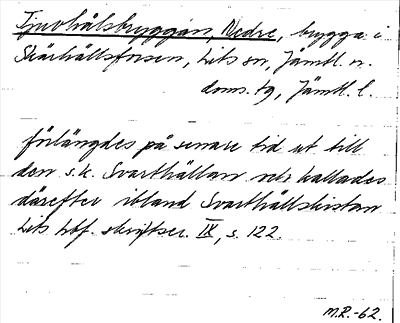 Tjuvhålsbryggan, Nedre, brygga i
Skärhällsforsen, Lits sn, Jämtl. n.
doms. tg, Jämtl. l.
förlängdes på senare tid ut till
den s.k. Svarthällan och kallades
därefter ibland Svarthällskistan
Lits hbf. skriftser. IX, s. 122.
M.R.-62.